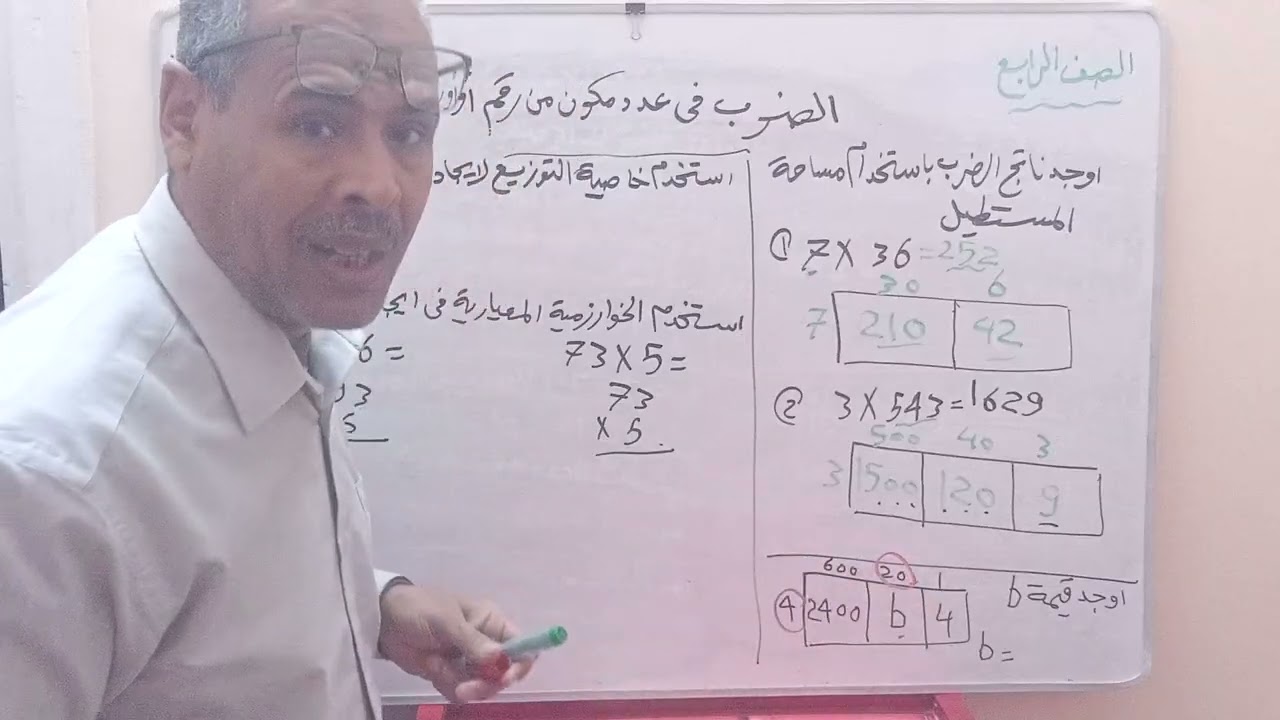 الصف الرابع
الضرب فى عدد مكون من رقم
اوجد ناتج الضرب باستخدام مساحة
المستطيل
① 7 X 36 = 252
30 6
7 210 42
② 3 X 543 = 1629
500 40 3
3 1500 120 9
600 20 1
4 2400 b 4
اوجد قيمة b
b =
استخدم خاصية التوزيع لايجاد
استخدم الخوارزمية المعيارية فى
73 X 5 =
73
X 5
6 =
3
5